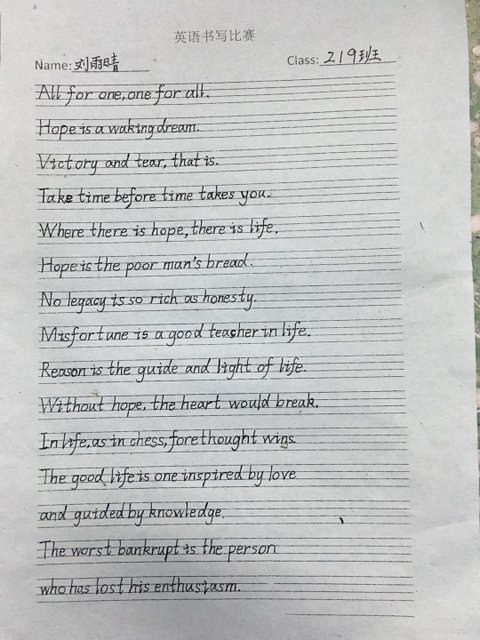 英语书写比赛
Name: 刘雨晴 Class: 219班
All for one, one for all.
Hope is a waking dream.
Victory and tear, that is.
Take time before time takes you.
Where there is hope, there is life.
Hope is the poor man's bread.
No legacy is so rich as honesty.
Misfortune is a good teacher in life.
Reason is the guide and light of life.
Without hope, the heart would break.
In life, as in chess, forethought wins.
The good life is one inspired by love
and guided by knowledge.
The worst bankrupt is the person
who has lost his enthusiasm.